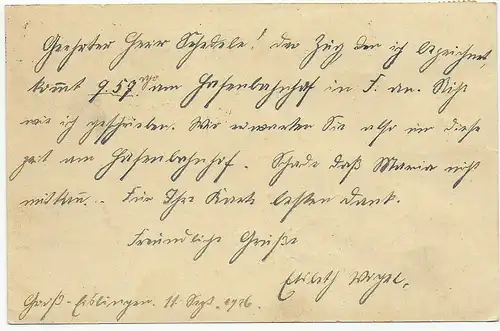 Geehrter Herr Schedele! Der Zug den ich bezeichnet,
kommt 9.57 am Hafenbahnhof in F. an. Nicht
wie ich geschrieben. Wir erwarten Sie also um diese
Zeit am Hafenbahnhof. Schade daß Maria nicht
mitkann. Für Ihre Karte besten Dank.
Freundliche Grüße
Elisabeth
Groß-Eislingen. 11. Sept. 1926.